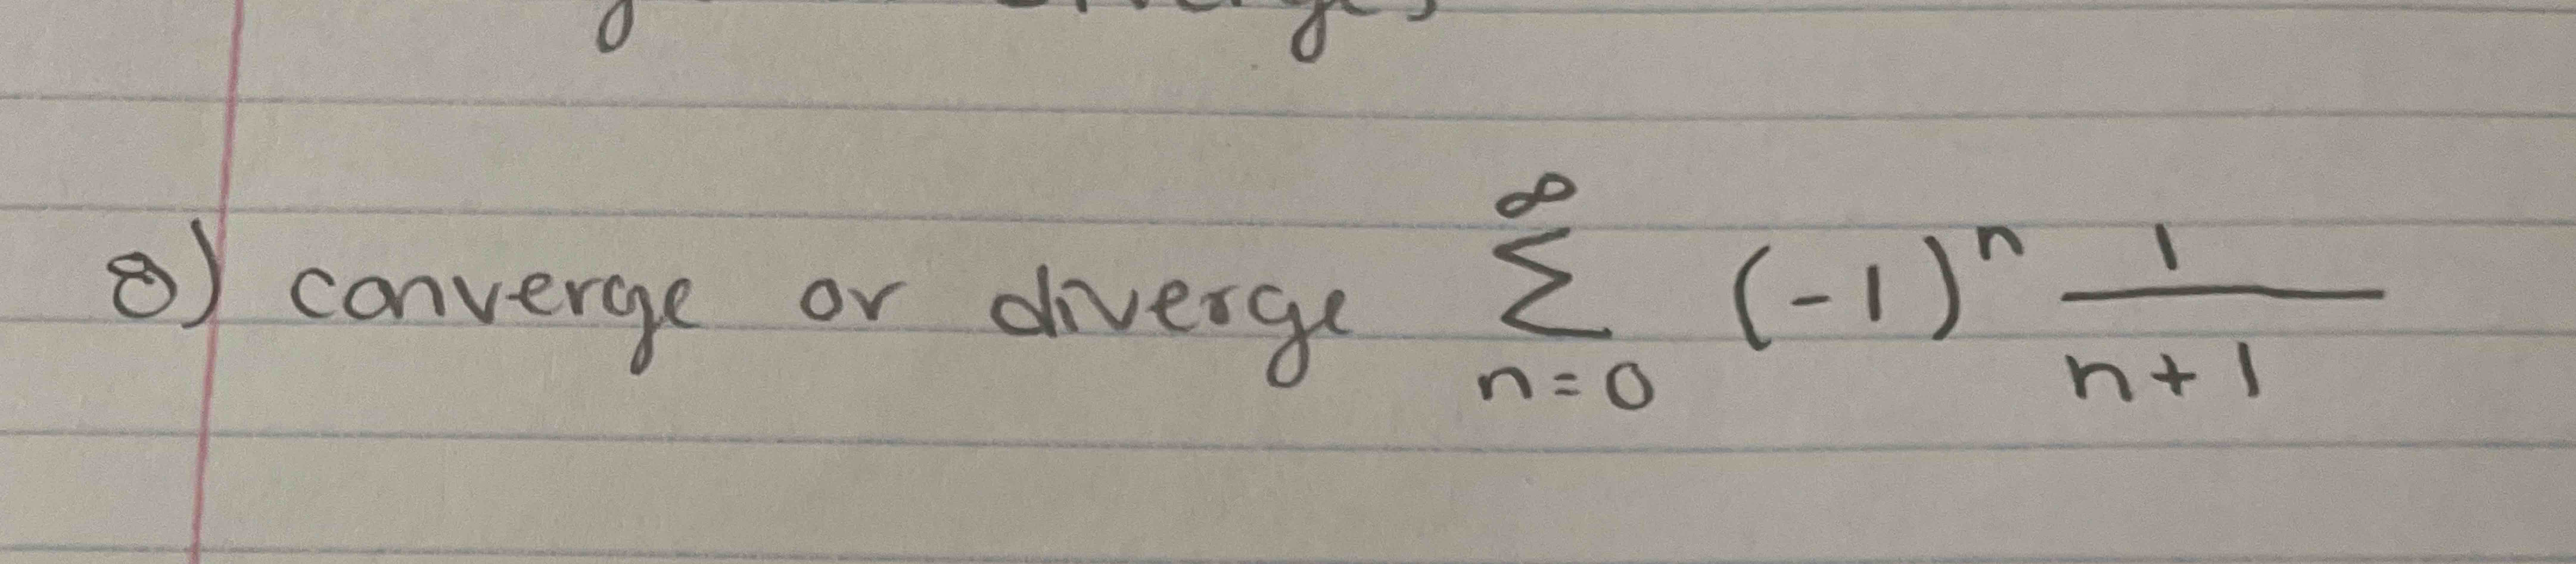 8) converge or diverge ∞ Σ n=0 (-1)ⁿ 1/(n+1)